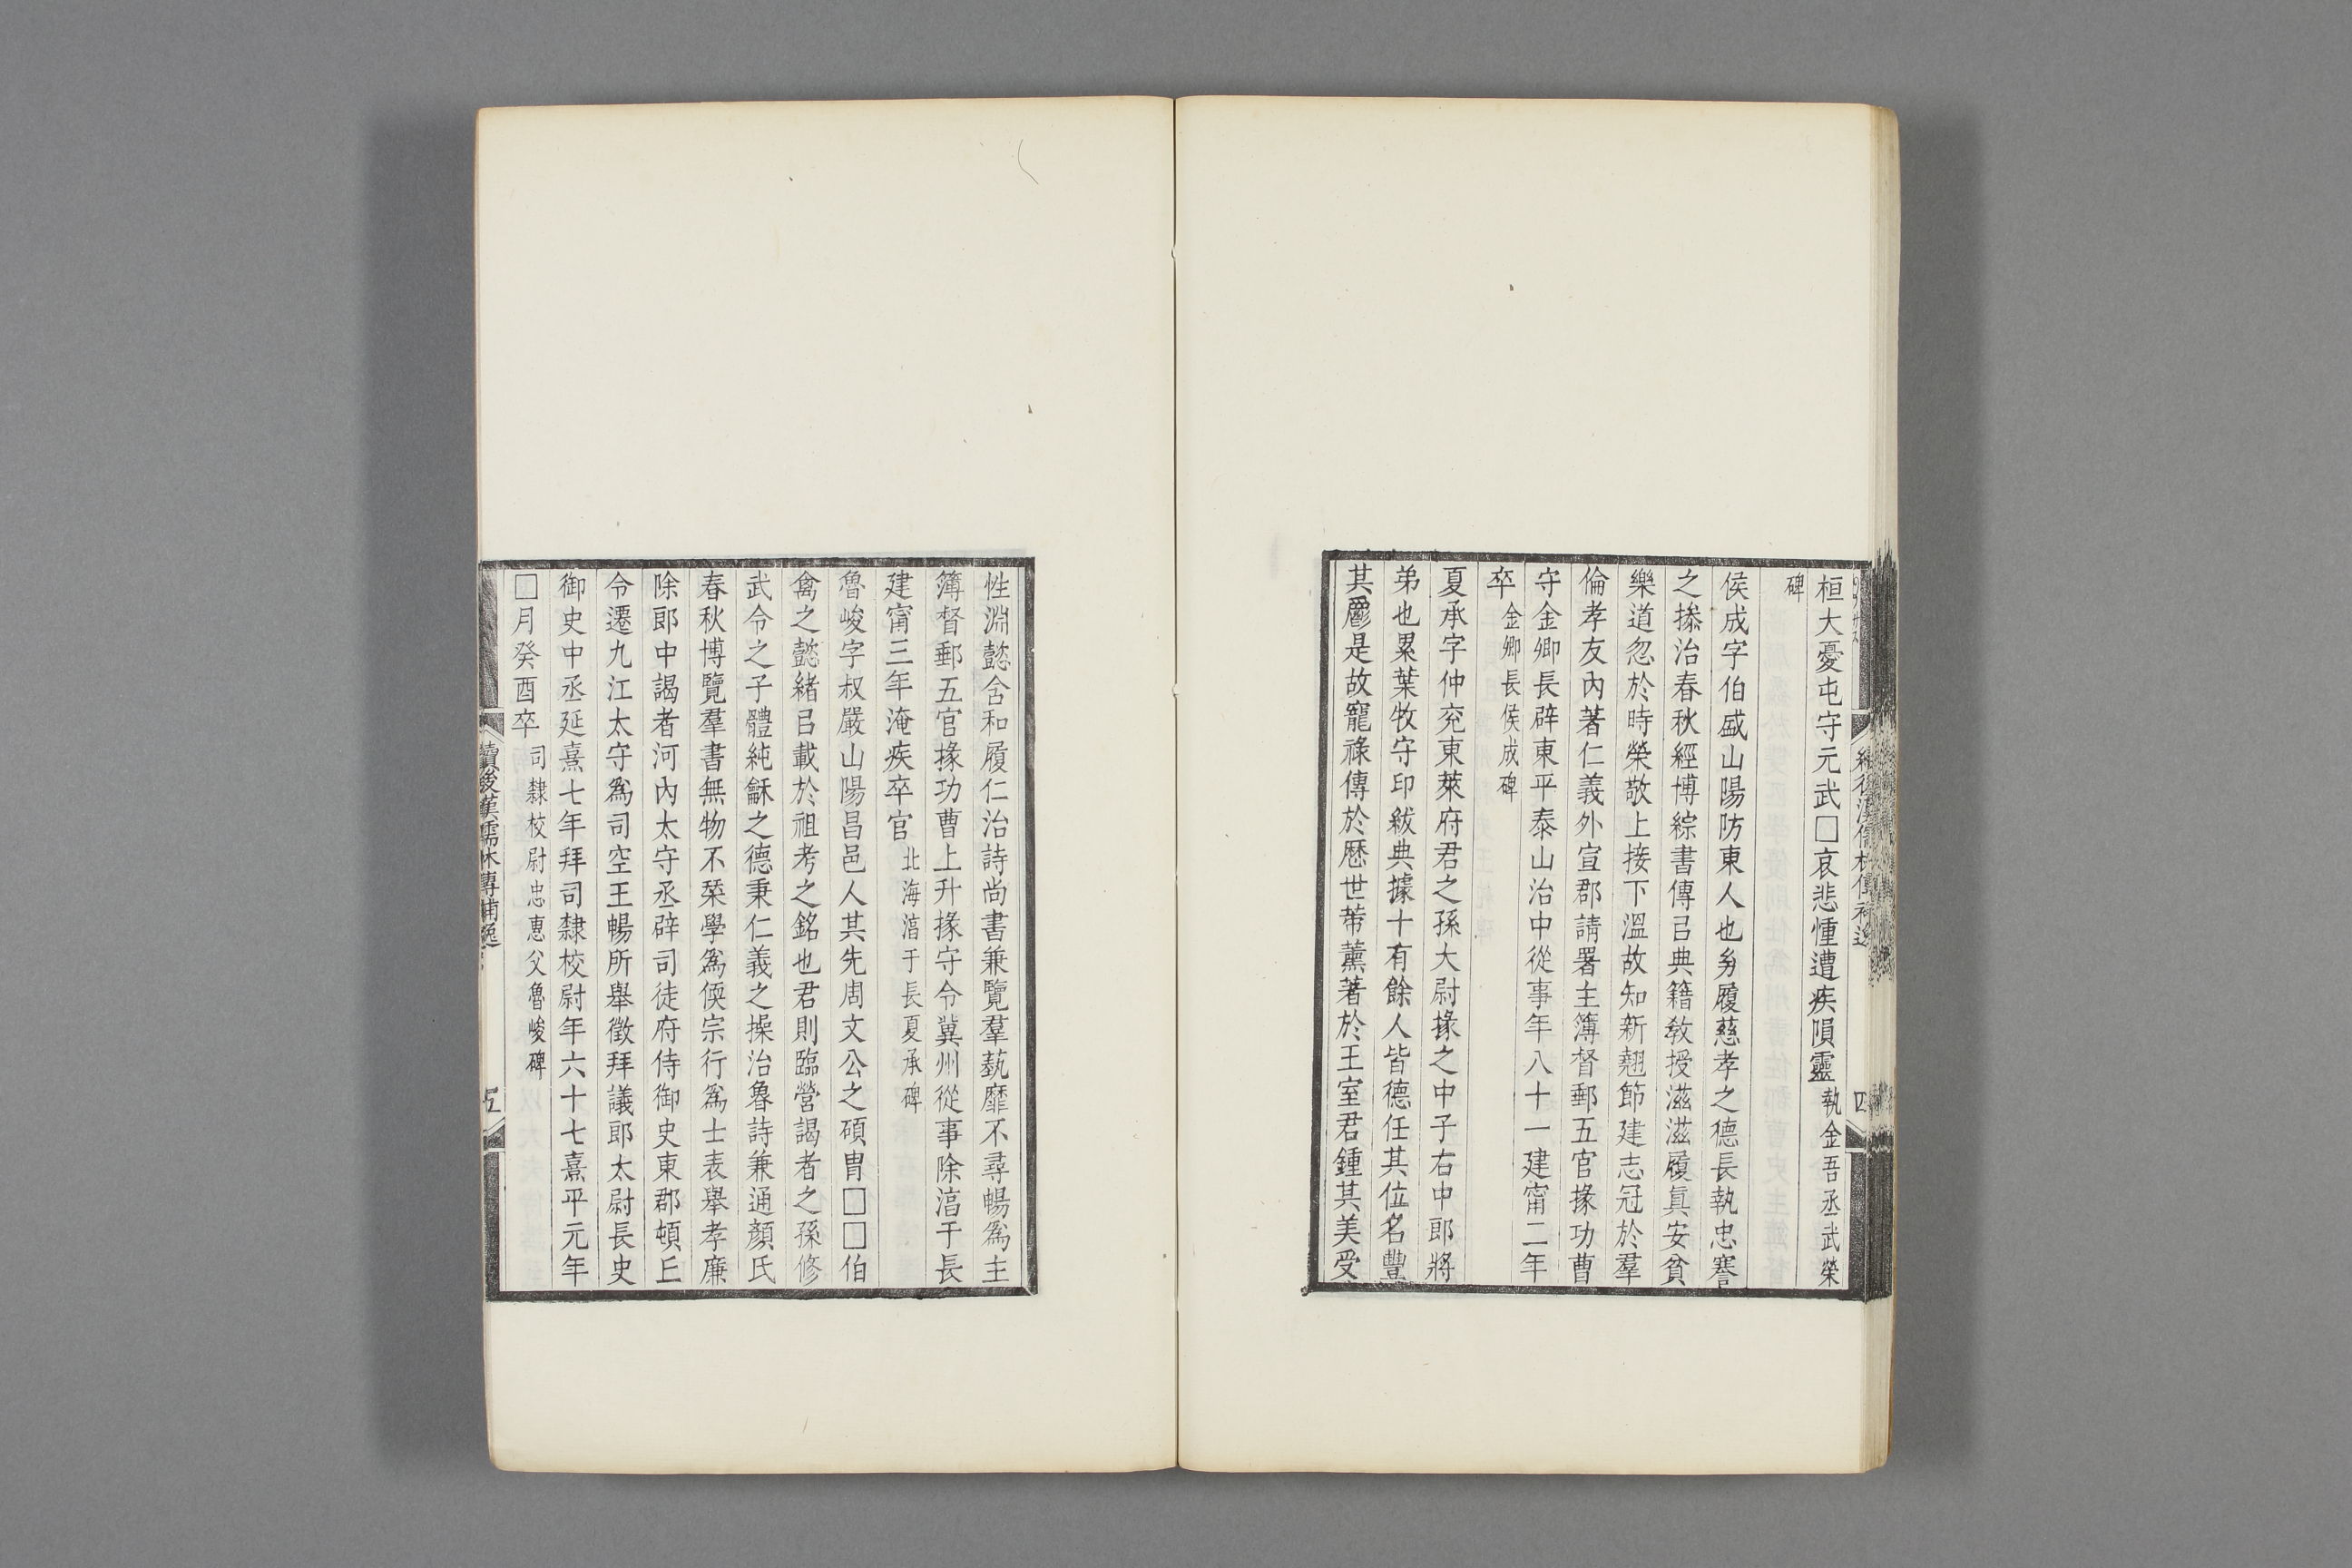 桓大憂屯守元武□哀悲慟遭疾隕靈執金吾丞武榮
碑
侯成字伯盛山陽防東人也㓜履慈孝之德長執忠謇
之操治春秋經博綜書傳㠯典籍敎授滋滋履眞安貧
樂道忽於時榮敬上接下溫故知新翹節建志冠於羣
倫孝友內著仁義外宣郡請署主簿督郵五官掾功曹
守金鄉長辟東平泰山治中從事年八十一建甯二年
卒金鄉長侯成碑
夏承字仲兗東萊府君之孫大尉掾之中子右中郎將
弟也累葉牧守印紱典據十有餘人皆德任其位名豐
其爵是故寵祿傳於歷世䇹薰著於王室君鍾其美受
性淵懿含和履仁治詩尚書兼覽羣藝靡不尋暢爲主
簿督郵五官掾功曹上升掾守令冀州從事除淯于長
建甯三年淹疾卒官北海淯于長夏承碑
魯峻字叔嚴山陽昌邑人其先周文公之碩胄□□伯
禽之懿緒㠯載於祖考之銘也君則臨營謁者之孫修
武令之子體純龢之德秉仁義之操治魯詩兼通顏氏
春秋博覽羣書無物不栞學爲偄宗行爲士表舉孝廉
除郎中謁者河內太守丞辟司徒府侍御史東郡頓丘
令遷九江太守爲司空王暢所舉徵拜議郎太尉長史
御史中丞延熹七年拜司隸校尉年六十七熹平元年
□月癸酉卒司隸校尉忠惠父魯峻碑
續後漢儒林傳補逸
五